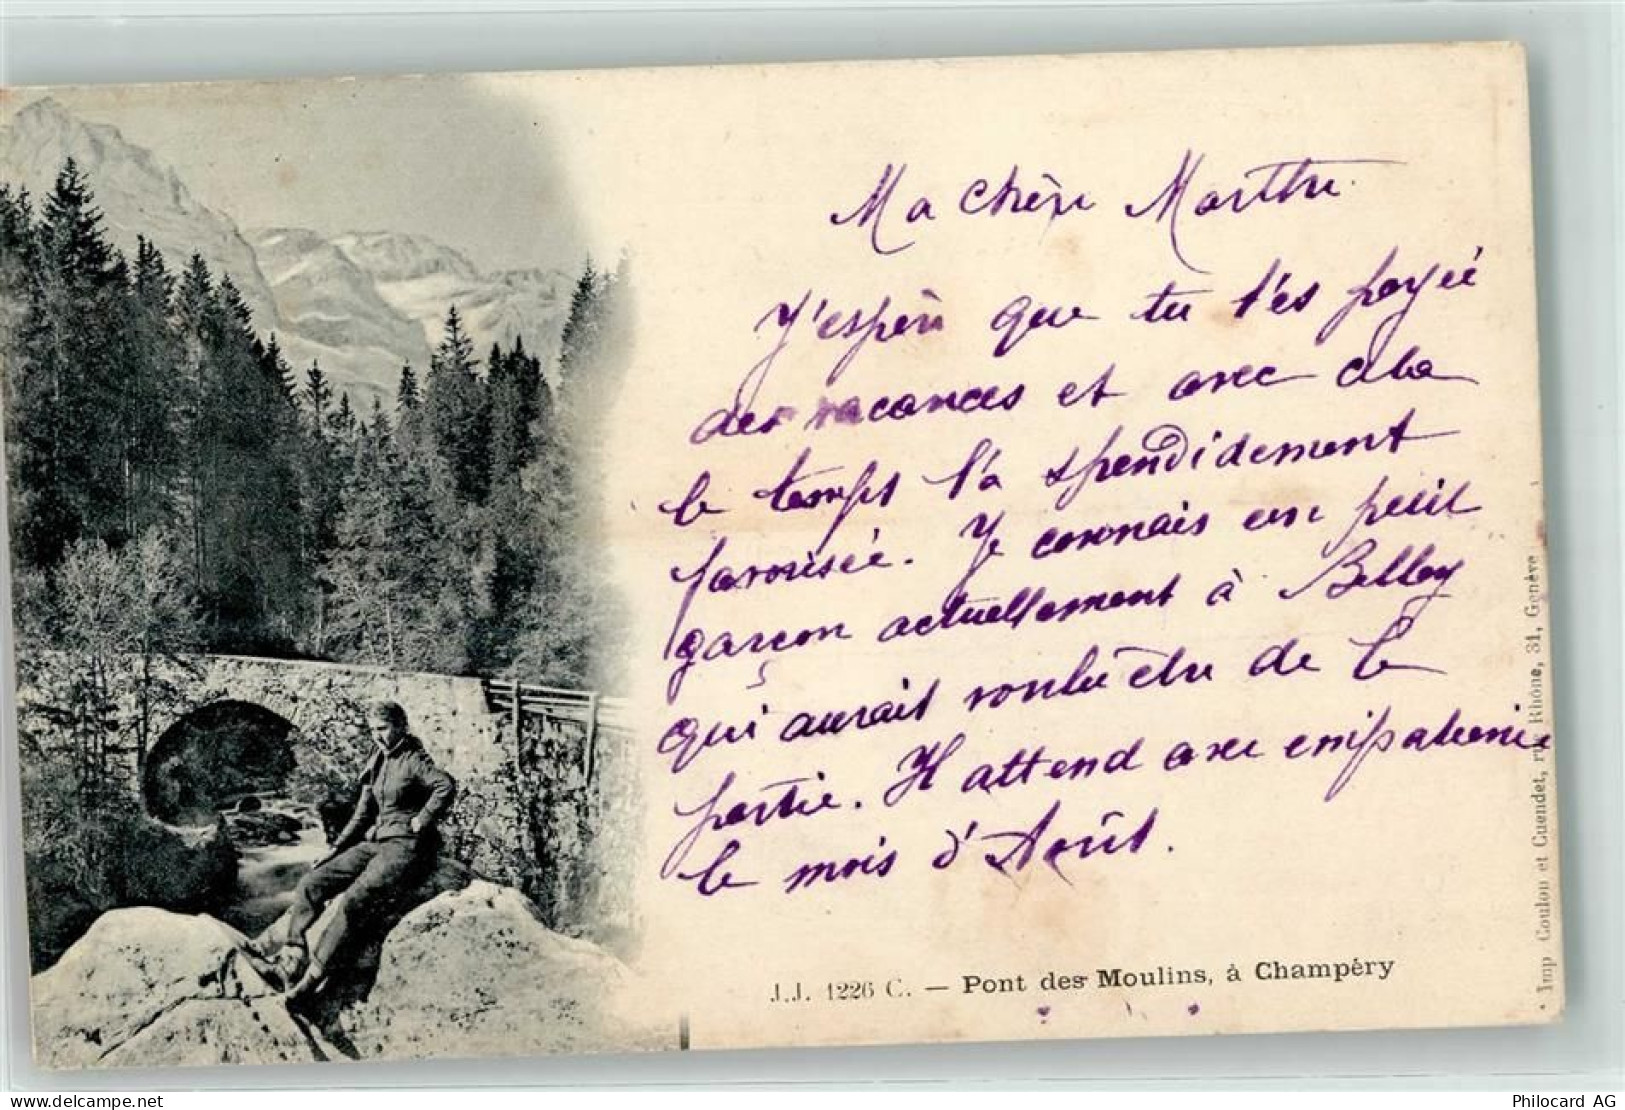 Ma chère Marthe
J'espère que tu t'es payée
des vacances et avec cela
le temps t'a splendidement
favorisée. Je connais un petit
garçon actuellement à Belley
qui aurait voulu être de la
partie. Il attend avec impatience
le mois d'Août.
J.J. 1226 C. — Pont des Moulins, à Champéry
Imp Coulon et Cuendet, rue Rhône, 31, Genève
Philocard AG